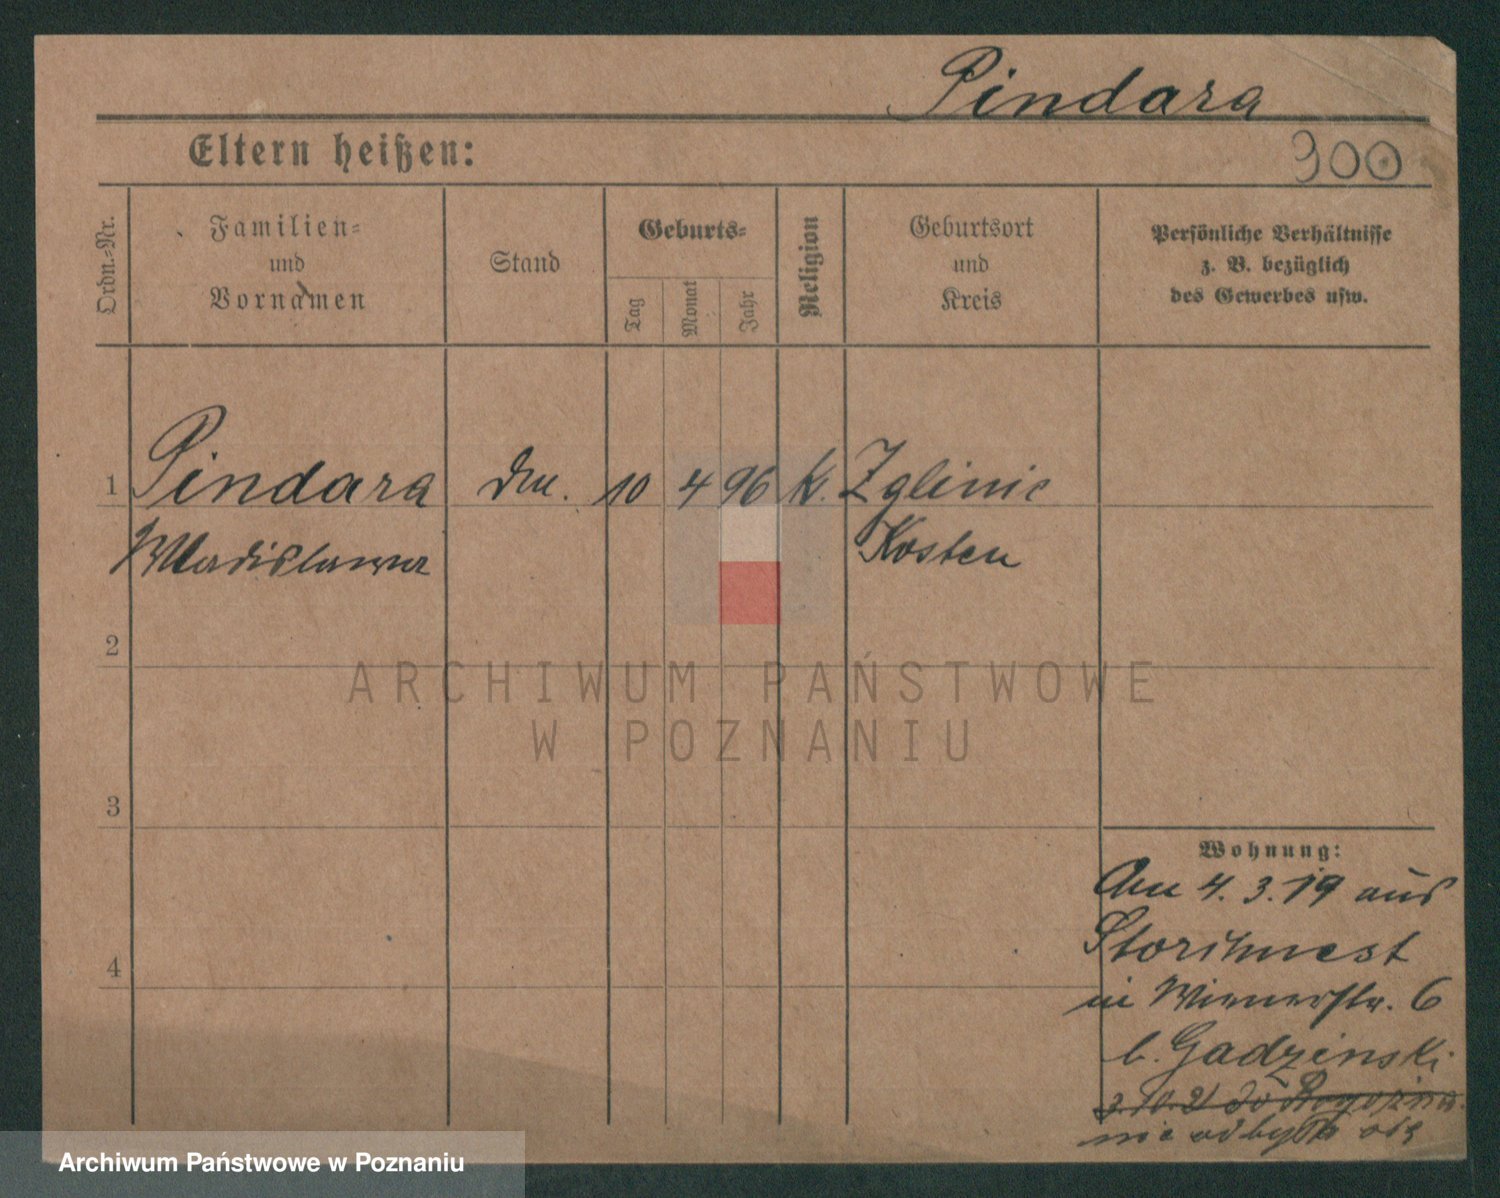 Pindara
Eltern heißen:
300
Ordn.-Nr.
Familien-
und
Vornamen
Stand
Geburts-
Tag
Monat
Jahr
Religion
Geburtsort
und
Kreis
Persönliche Verhältnisse
z. B. bezüglich
des Gewerbes usw.
1 Pindara 10 4 96 k. Zglinic
Wladislawa Kosten
2
3
4
Wohnung:
Am 4.3.19 aus
Storchnest
in Wienerstr. 6
b. Gadzinski
3.10.21 do Rogoźna
nie odbyła się
ARCHIWUM PAŃSTWOWE
W POZNANIU
Archiwum Państwowe w Poznaniu